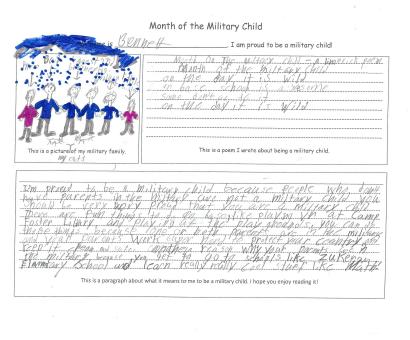 Month of the Military Child
is Bennett, I am proud to be a military child!
Month Of The military child - a limerick poem
Month of the military child
on the day it is wild
on base school is a
on the day it is wild
This is a picture of my military family,
my cats
This is a poem I wrote about being a military child.
I'm proud to be a military child because people who don't
have parents in the military are not a military child you
should be very proud that you are a military child
There are fun things to do on base like playing at Camp
Foster library, and play at the play grounds, you can do
those things because one or both parents are in the military
and your parents work super hard protect your country and
keep it reason why your parents are in
the military because you get to go to schools like Zukeran
Elementary School and learn really really cool like Math
This is a paragraph about what it means to me to be a military child. I hope you enjoy reading it!